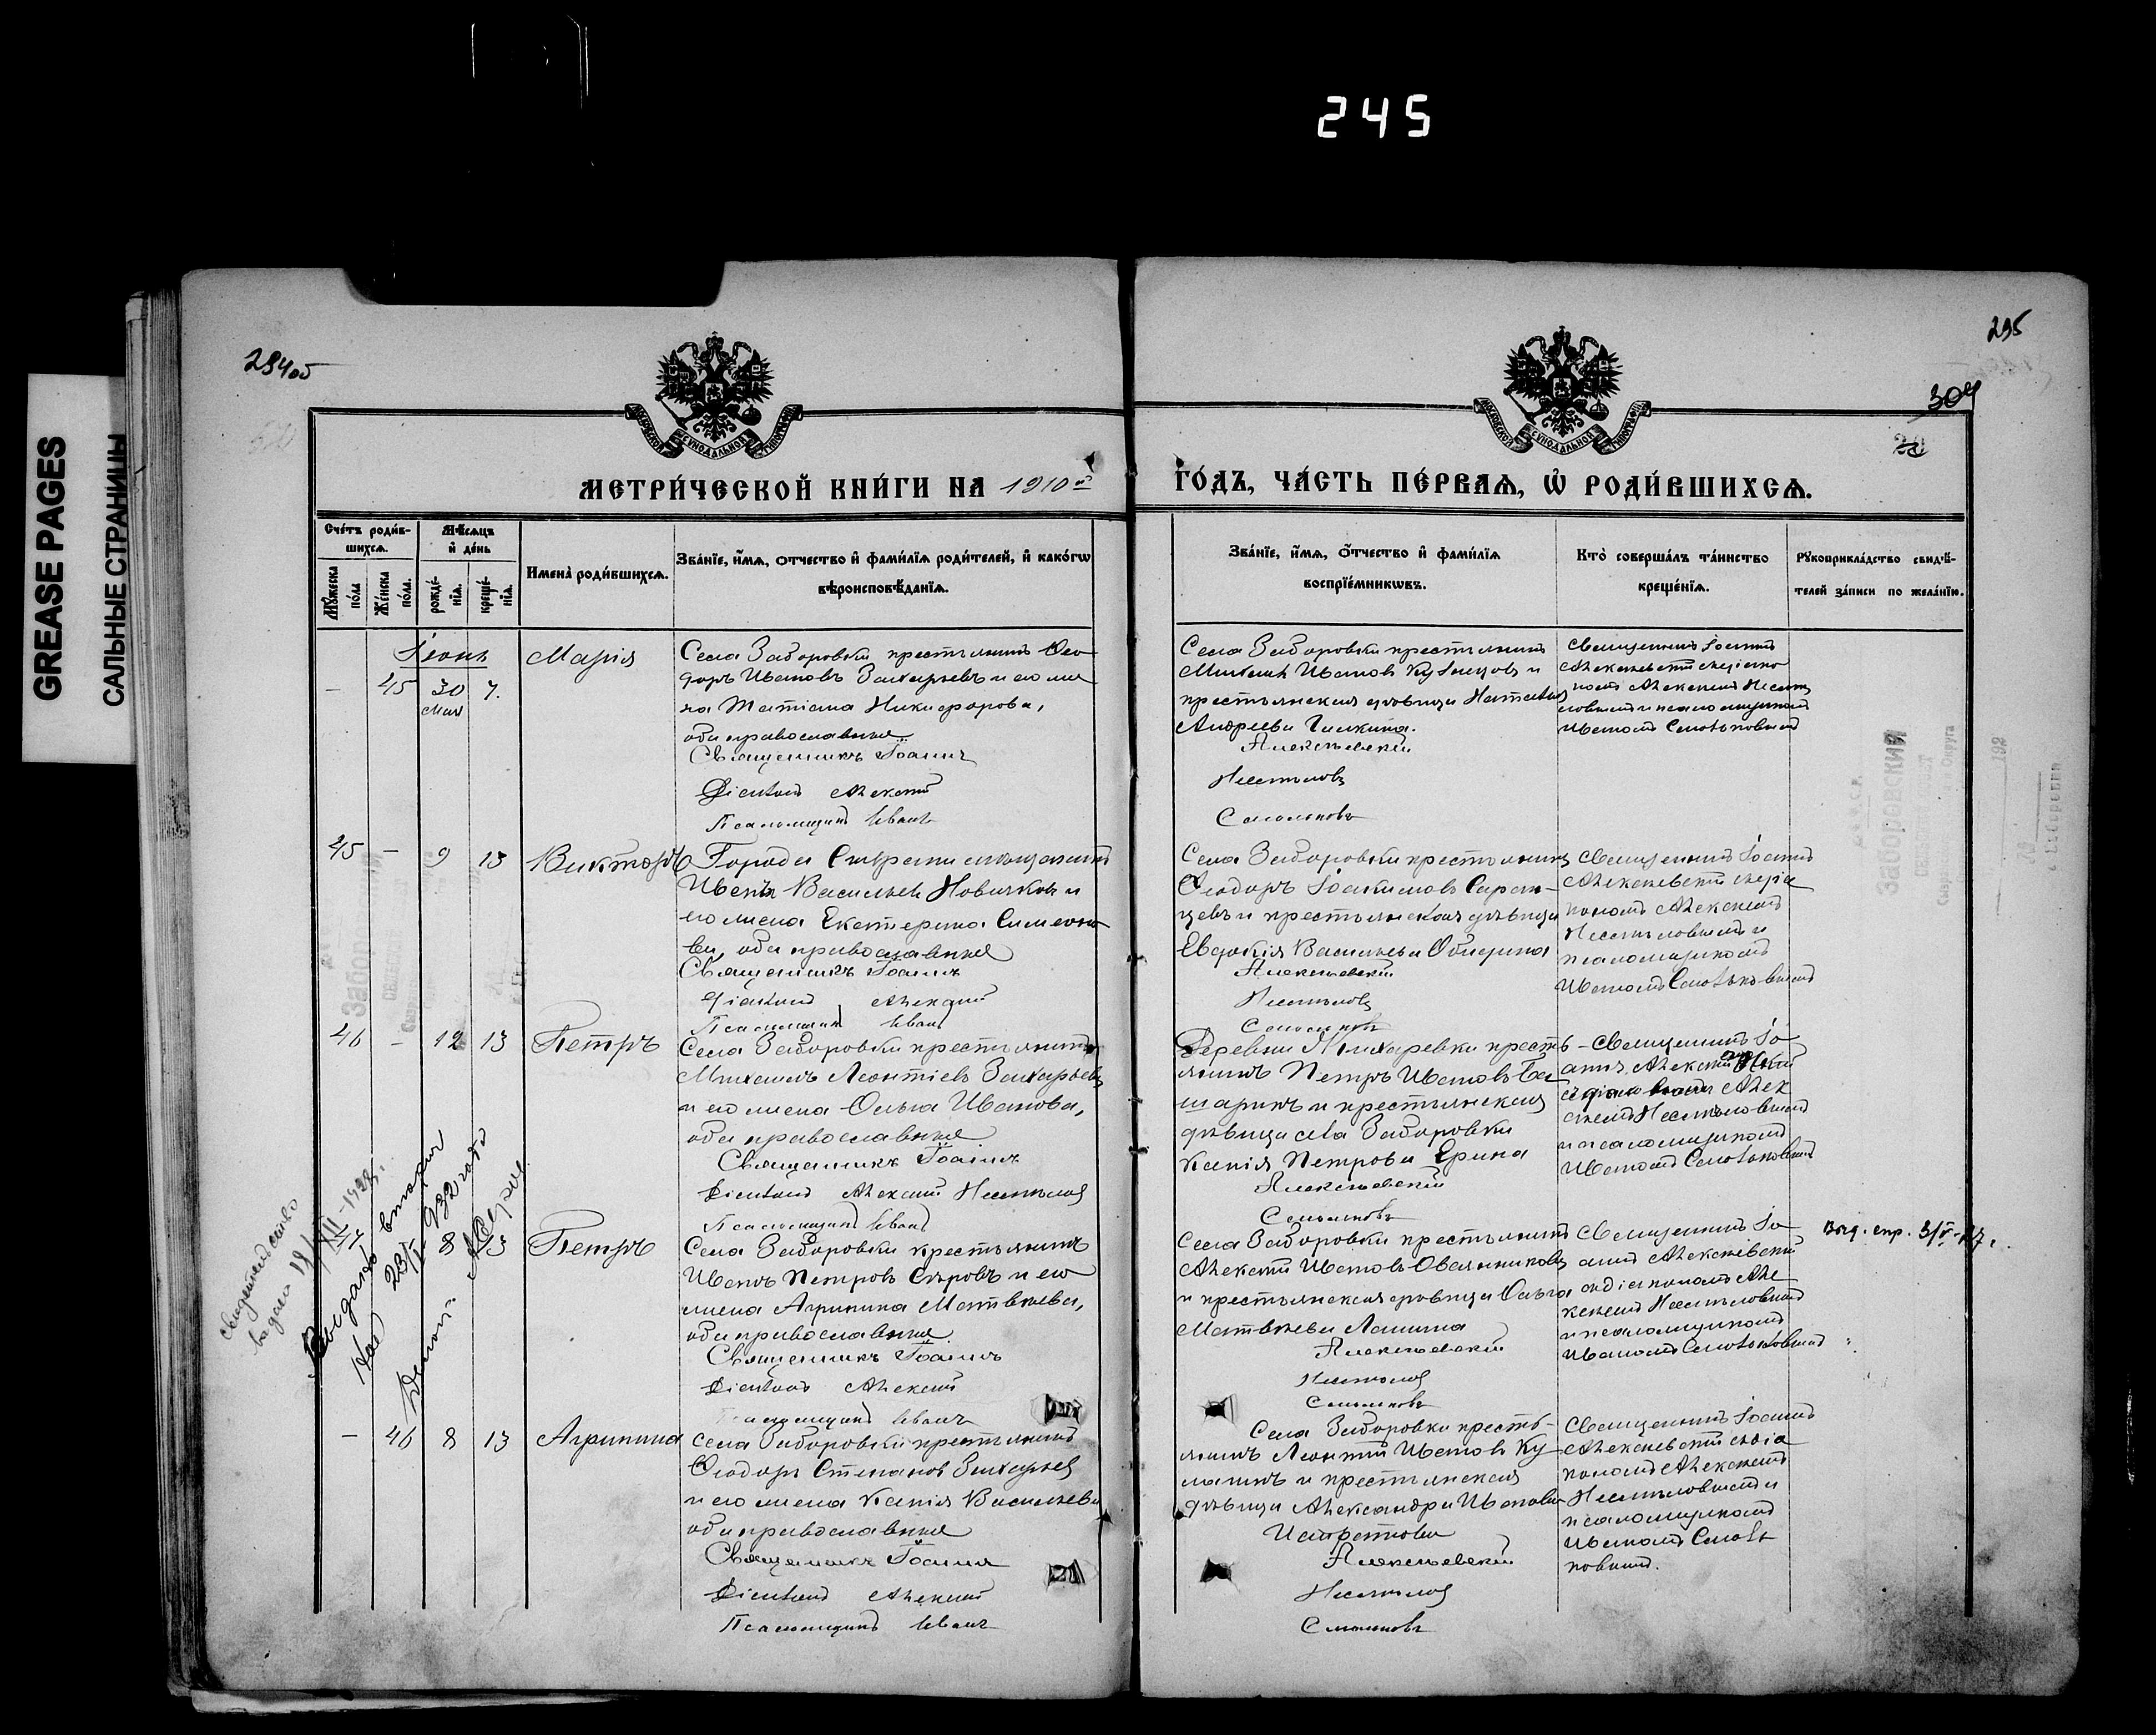 245
GREASE PAGES
САЛЬНЫЕ СТРАНИЦЫ
294об
295
304
МОСКОВСКОЙ СѴНОДАЛЬНОЙ ТИПОГРАФІИ
МОСКОВСКОЙ СѴНОДАЛЬНОЙ ТИПОГРАФІИ
МЕТРИ́ЧЕСКОЙ КНИ́ГИ НА 1910й
ГО́ДЪ, ЧА́СТЬ ПЕ́РВАѦ, Ѡ҆ РОДИ́ВШИХСѦ.
Сче́тъ роди́в-
шихсѧ.
Мꙋ́жеска
по́ла
Же́нска
по́ла.
Мѣ́сѧцъ
и҆ де́нь
рожде́-
нїѧ.
креще́-
нїѧ.
Имена̀ роди́вшихсѧ.
Зва́нїе, и҆́мѧ, отчество и҆ фами́лїѧ роди́телей, и҆ како́гѡ
вѣроисповѣ́данїѧ.
Зва́нїе, и҆́мѧ, ѻ҆́тчество и҆ фами́лїѧ
воспрїе́мникѡвъ.
Кто̀ соверша́лъ та́инство
креще́нїѧ.
Рꙋкоприкла́дство свидѣ́-
телей за́писи по жела́нїю.
Іюнь
– 45 30 7.
мая
Марія
Села Заборовки крестьянинъ Ѳео-
доръ Ивановъ Захарьевъ и его же-
на Татіана Никифорова,
оба православные
Священникъ Іоаннъ
Діаконъ Алексій
Псаломщикъ Иванъ
Села Заборовки крестьянинъ
Михаилъ Ивановъ Кузнецовъ и
крестьянская дѣвица Наталія
Андреева Галкина.
Алексѣевскій
Несмѣловъ
Смольковъ
Священникъ Іоаннъ
Алексѣевскій съ діако-
номъ Алексіемъ Несмѣ-
ловымъ и псаломщикомъ
Иваномъ Смольковымъ
45 – 9 13
Викторъ
Города Сызрани мѣщанинъ
Иванъ Васильевъ Новичковъ и
его жена Екатерина Симеоно-
ва, оба православные
Священникъ Іоаннъ
Діаконъ Алексій
Псаломщикъ Иванъ
Села Заборовки крестьянинъ
Ѳеодоръ Іоакимовъ Саран-
цевъ и крестьянская дѣвица
Евдокія Васильева
Алексѣевскій
Несмѣловъ
Смольковъ
Священникъ Іоаннъ
Алексѣевскій съ діа-
кономъ Алексіемъ
Несмѣловымъ и
псаломщикомъ
Иваномъ Смольковымъ
46 – 12 13
Петръ
Села Заборовки крестьянинъ
Михаилъ Леонтіевъ Захарьевъ
и его жена Ольга Иванова,
оба православные
Священникъ Іоаннъ
Діаконъ Алексій Несмѣловъ
Псаломщикъ Иванъ
Деревни крестья-
янинъ Петръ Ивановъ Ба-
шаринъ и крестьянская
дѣвица села Заборовки
Ксенія Петрова Ерина
Алексѣевскій
Смольковъ
Священникъ Іо-
аннъ Алексѣевскій
съ діакономъ Алек-
сіемъ Несмѣловымъ
и псаломщикомъ
Иваномъ Смольковымъ
8 13
Петръ
Села Заборовки крестьянинъ
Иванъ Петровъ Сѣровъ и его
жена Агрипина Матвѣева,
оба православные
Священникъ Іоаннъ
Діаконъ Алексій
Псаломщикъ Иванъ
Села Заборовки крестьянинъ
Алексѣй Ивановъ Овсянниковъ
и крестьянская дѣвица Ольга
Матвѣева Лапшина
Алексѣевскій
Несмѣловъ
Смольковъ
Священникъ Іо-
аннъ Алексѣевскій
съ діакономъ Але-
ксіемъ Несмѣловымъ
и псаломщикомъ
Иваномъ Смольковымъ
Выд. спр. 3/V-27г.
Свидетельство
выдано
Выдано вторич
23/I-932 года
– 46 8 13
Агрипина
Села Заборовки крестьянинъ
Ѳеодоръ Степановъ Захарьевъ
и его жена Ксенія Васильева
оба православные
Священникъ Іоаннъ
Діаконъ Алексій
Псаломщикъ Иванъ
Села Заборовки кресть-
янинъ Леонтій Ивановъ Ку-
лагинъ и крестьянская
дѣвица Александра Иванова
Алексѣевскій
Несмѣловъ
Смольковъ
Священникъ Іоаннъ
Алексѣевскій съ діа-
кономъ Алексіемъ
Несмѣловымъ и
псаломщикомъ
Иваномъ Смоль-
ковымъ.
Заборовский